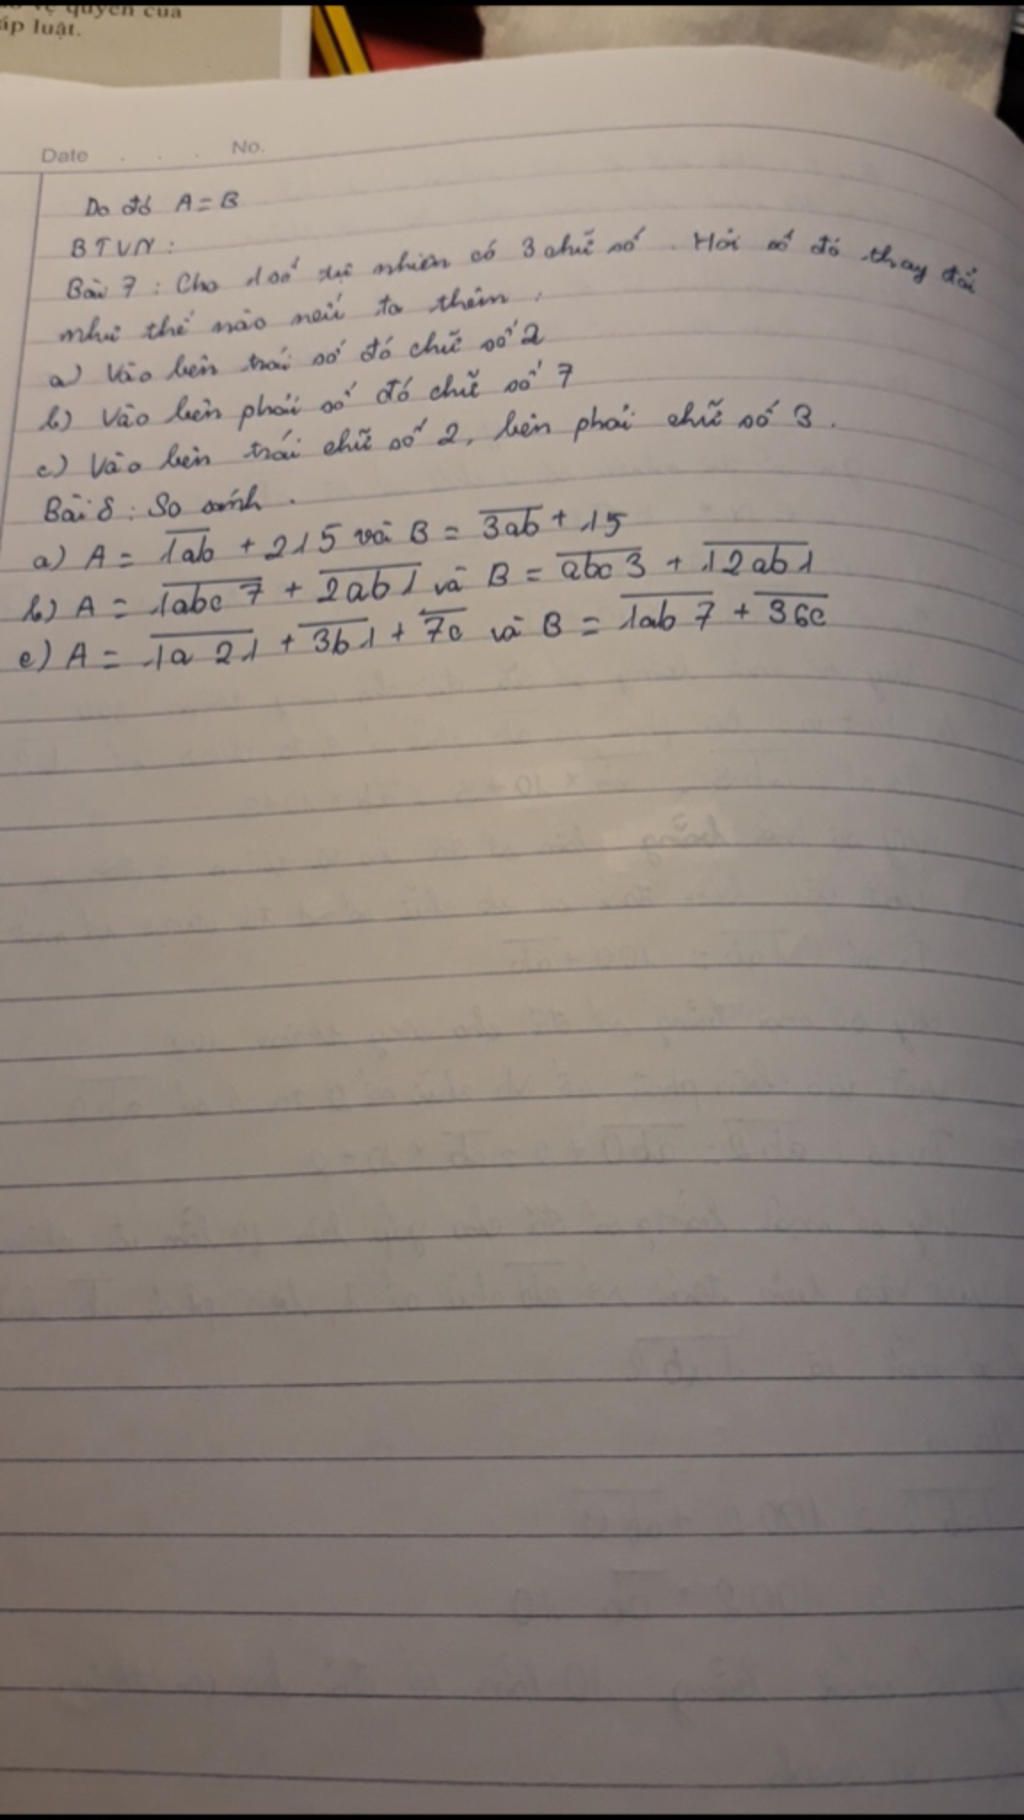 quyền của
áp luật.
Date . . . No.
Do đó A = B
BTVN :
Bài 7 : Cho 1 số tự nhiên có 3 chữ số . Hỏi số đó thay đổi
như thế nào nếu ta thêm :
a) Vào bên trái số đó chữ số 2
b) Vào bên phải số đó chữ số 7
c) Vào bên trái chữ số 2, bên phải chữ số 3 .
Bài 8 : So sánh .
a) A = 1ab + 215 và B = 3ab + 15
b) A = 1abc7 + 2ab1 và B = abc3 + 12ab1
c) A = 1a21 + 3b1 + 7c và B = 1ab7 + 36c